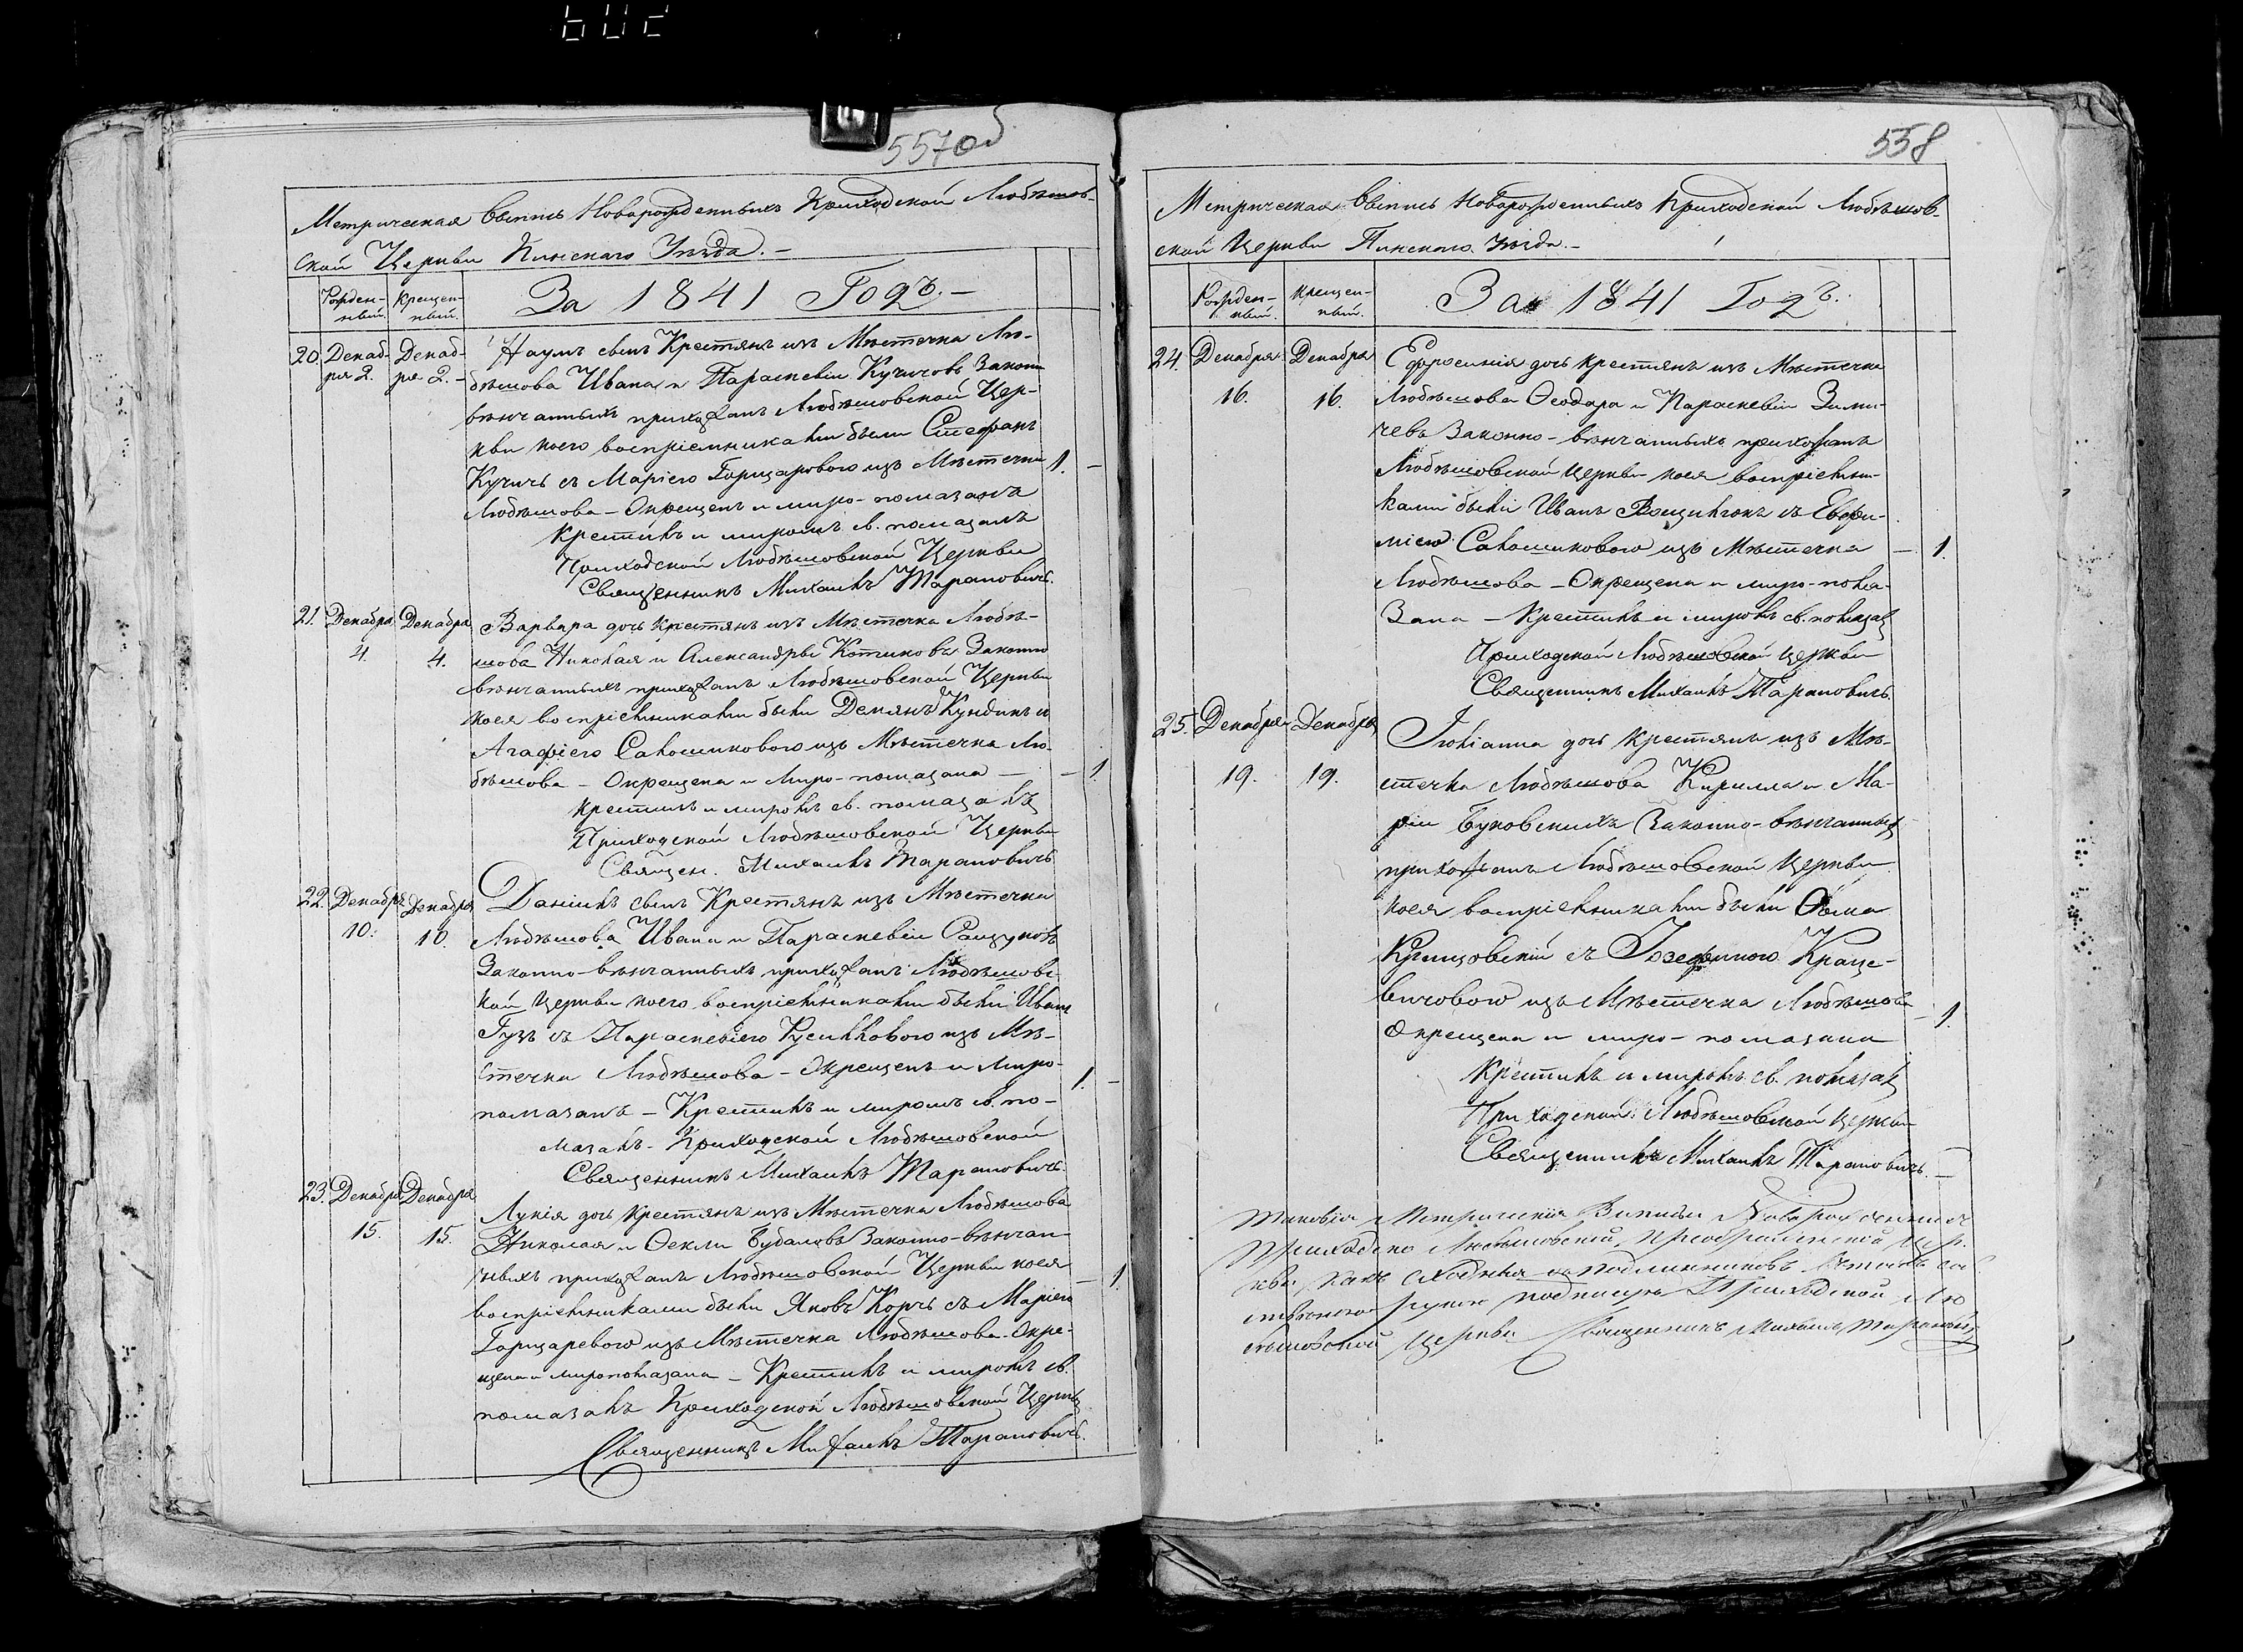 557об
Метрическая Выпись Новорожденныхъ Приходской Любешов-
ской Церкви Пинскаго Уезда. –
Рожден-
ный.
Крещен-
ный.
За 1841 Годъ. –
20. Декаб-
ря 2.
Декаб-
ря 2. –
Наумъ сынъ Крестянъ изъ Местечка Лю-
бешова Ивана и Параскевіи Кучичовъ Законно
венчанныхъ прихожанъ Любешовской Цер-
кви коего воспріемниками были Стефанъ
Кучичъ съ Маріею Горщаровою изъ Местечка
Любешова – Окрещенъ и миро-помазанъ
1. –
Крестилъ и миромъ св. помазалъ
Приходской Любешовской Церкви
Священникъ Михаилъ Тарановичъ.
21. Декабря
4.
Декабря
4.
Варвара дочь Крестянъ изъ Местечка Любе-
шова Николая и Александры Котиковъ Законно
венчанныхъ прихожанъ Любешовской Церкви
коея воспріемниками были Демянъ Кундикъ и
Агафіею Саломиковою изъ Местечка Лю-
бешова – Окрещена и Миро-помазана –
– 1.
Крестилъ и миромъ св. помазалъ
Приходской Любешовской Церкви
Священ. Михаилъ Тарановичъ
22. Декабря
10.
Декабря
10.
Даніилъ сынъ Крестянъ изъ Местечка
Любешова Ивана и Параскевіи
Законно-венчанныхъ прихожанъ Любешовс-
кой Церкви коего воспріемниками были Иванъ
Гузъ съ Параскевіею изъ Ме-
стечка Любешова – Окрещенъ и Миро-
помазанъ – Крестилъ и миромъ св. по-
1. –
мазалъ – Приходской Любешовской
Священникъ Михаилъ Тарановичъ.
23. Декабря
15.
Декабря
15.
Лукія дочь Крестянъ изъ Местечка Любешова
Николая и Ѳеклы Будаловъ Законно-венчан-
ныхъ прихожанъ Любешовской Церкви коея
воспріемниками были Яковъ Корчъ съ Маріею
– 1
Горщаревою изъ Местечка Любешова. Окре-
щена и миропомазана – Крестилъ и миромъ св.
помазалъ Приходской Любешовской Церкви
Священникъ Михаилъ Тарановичъ.
558
Метрическая Выпись Новорожденныхъ Приходской Любешов-
ской Церкви Пинскаго Уезда. –
Рожден-
ный.
Крещен-
ный.
За 1841 Годъ.
24. Декабря
16.
Декабря
16.
Ефросинія дочь Крестянъ изъ Местечка
Любешова Ѳеодора и Параскевіи Зими-
чевъ Законно-венчанныхъ прихожанъ
Любешовской Церкви коея воспріемни-
ками были Иванъ съ Евфи-
міею Саломиковою изъ Местечка
– 1.
Любешова – Окрещена и миро-пома-
зана – Крестилъ и миромъ св. помазалъ
Приходской Любешовской Церкви
Священникъ Михаилъ Тарановичъ.
25. Декабря
19.
Декабря
19.
Іюліанна дочь Крестянъ изъ Ме-
стечка Любешова Кирилла и Ма-
ріи Буковскихъ Законно-венчанныхъ
прихожанъ Любешовской Церкви
коея воспріемниками были Ѳома
съ Іозефиною Краце-
вичовою изъ Местечка Любешова
– 1.
Окрещена и миро-помазана
Крестилъ и миромъ св. помазалъ
Приходской Любешовской Церкви
Священникъ Михаилъ Тарановичъ. –
Таковыя Метрическія Записи Новорожденныхъ
Приходско Любешовской Преображенской Цер-
кви, какъ сходныя съ подлинникомъ
рукою подписую Приходской Лю-
бешовской Церкви Священникъ Михаилъ Тарановичъ